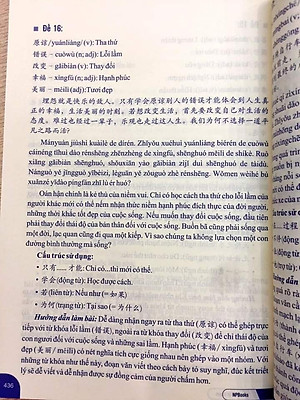 ■ Đề 16:
原谅 /yuánliàng/ (v): Tha thứ
错误 – cuòwù (n; adj): Lỗi lầm
改变 – gǎibiàn (v): Thay đổi
幸福 – xìngfú (n; adj): Hạnh phúc
美丽 – měilì (adj):Tươi đẹp
埋怨就是快乐的敌人。只有学会原谅别人的错误才能体会到人生真
正的幸福，生活美丽的时刻。若想改变生活，首先要改变自己对生活的
态度。难过也经过一辈子，乐观也走过这人生。我们为何不选择一道平
凡之路而活？
Mányuàn jiùshì kuàilè de dírén. Zhǐyǒu xuéhuì yuánliàng biérén de cuòwù
cáinéng tǐhuì dào rénshēng zhēnzhèng de xìngfú, shēnghuó měilì de shíkè. Ruò
xiǎng gǎibiàn shēnghuó, shǒuxiān yào gǎibiàn zìjǐ duì shēnghuó de tàidù.
Nánguò yě jīngguò yībèizi, lèguān yě zǒuguò zhè rénshēng. Wǒmen wèihé bù
xuǎnzé yīdào píngfán zhī lù ér huó?
Oán hận chính là kẻ thù của niềm vui. Chỉ có học cách tha thứ cho lỗi lầm của
người khác mới có thể nếm nhận thức niềm hạnh phúc đích thực của đời người,
những thời khắc tốt đẹp của cuộc sống. Nếu muốn thay đổi cuộc sống, đầu tiên
phải thay đổi thái độ của bản thân đối với cuộc sống. Buồn bã cũng phải sống qua
một đời, lạc quan cũng đi qua một kiếp. Vì sao chúng ta không lựa chọn một con
đường bình thường mà sống?
Cấu trúc sử dụng:
• 只有……才能: Chỉ có...thì mới có thể.
• 学会(động từ): Học được cách.
• 若(liên từ): Nếu như (= 如果)
• 为何(trạng từ): Tại sao (= 为什么)
Hướng dẫn làm bài: Dễ dàng nhận ngay ra tha thứ (原谅) có thể ghép trực
tiếp với từ khóa lỗi lầm (错误), ngoài ra từ khóa thay đổi (改变) để chỉ thái độ của
con người đối với cuộc sống và những sai lầm. Hạnh phúc (幸福/ xìngfú) và tươi
đẹp (美丽/ měilì) có nét nghĩa tích cực giống nhau nên ghép vào một nhóm. Với
những từ khóa như thế này, đoạn văn viết theo cách bày tỏ suy nghĩ, đúc kết triết
lý sẽ dễ viết và dễ nhận được sự đồng cảm của người chấm hơn.
436
NPBooks